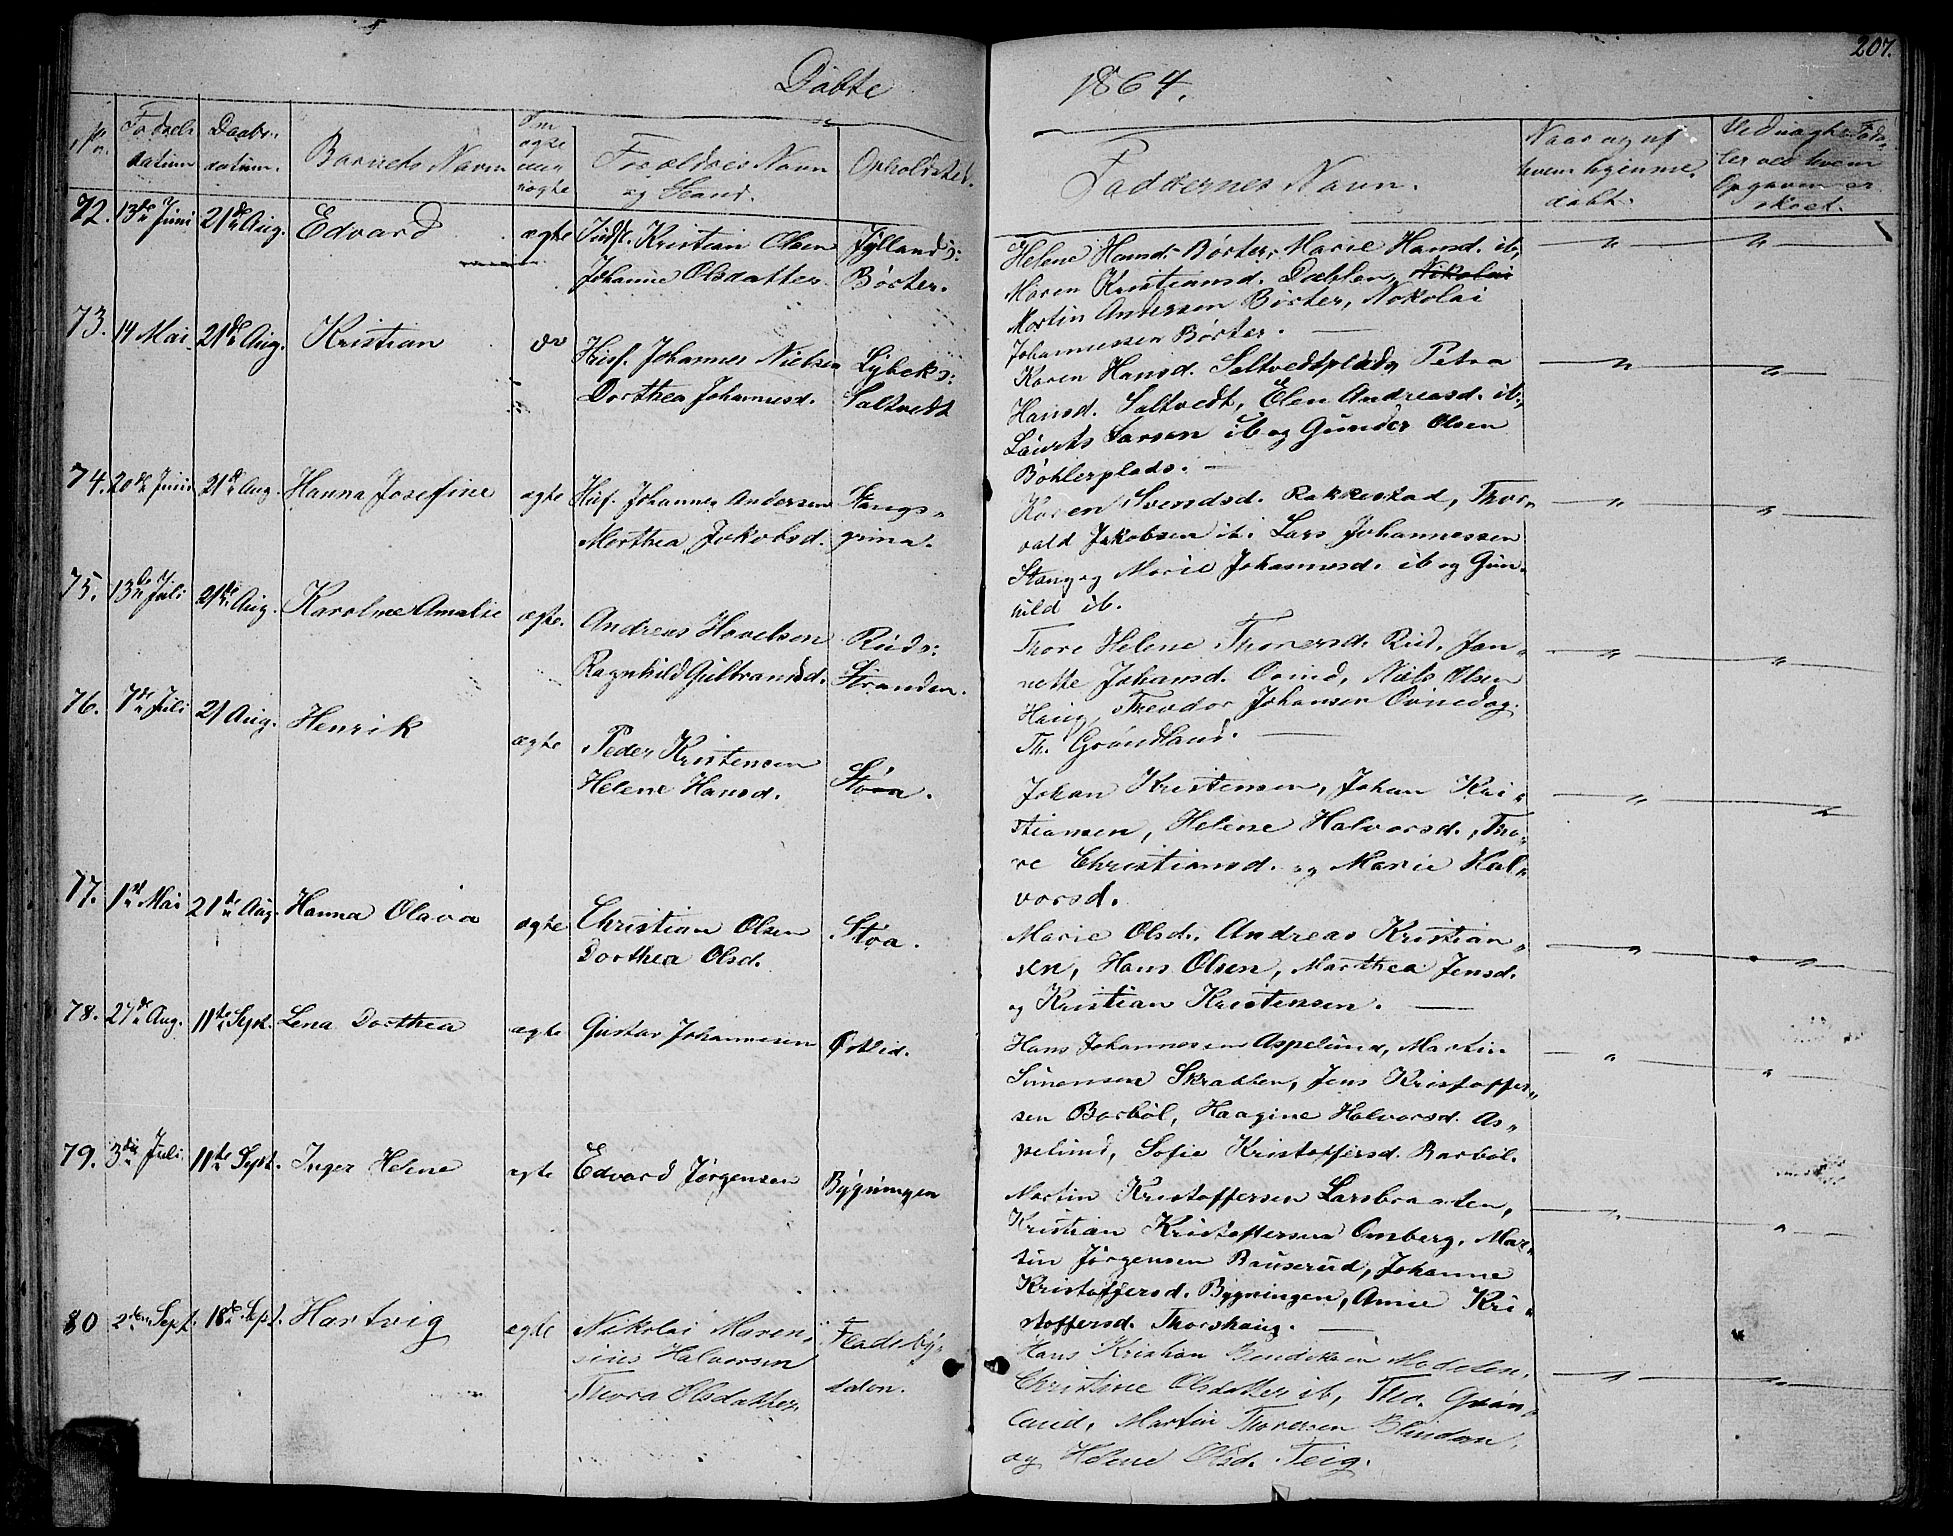 207.
Døbte 1864.
No.
Fødsels
datum
Daabs-
datum.
Barnets Navn
Om
ægte
eller
uægte
Forældres Navn
og Stand.
Opholdsted.
Faddernes Navn.
Naar og af
hvem hjemme
døbt.
Ved uægte Føds-
ler ved hvem
Opgaven er
skeet.
72. 13de Juni 21de Aug. Edvard ægte Indst. Kristian Olsen Jylland s:
Johanne Olsdatter. Børter.
Helene Hansd. Børter, Marie Hansd. ib,
Maren Kristiansd. Dahlen, Nikolai
Martin Andersen Børter, Nokolai
Johannessen Børter.
73. 14 Mai 21de Aug. Kristian do Husf. Johannes Nielsen Lybek s:
Dorthea Johannesd. Saltvedt
Karen Hansd. Saltvedtplads, Petra
Hansd. Saltvedt, Elen Andreasd. ib,
Laurits Larsen ib og Gunder Olsen
Bøhlerplads.
74. 20de Juni 21de Aug. Hanna Josefine ægte Husf. Johannes Andersen Stangs-
Marthea Jakobsd. grina.
Karen Svendsd. Rakkestad, Thor-
vald Jakobsen ib. Lars Johannessen
Stang og Marie Johannesd. ib og Gun-
hild ib.
75. 13de Juli 21de Aug. Karoline Amalie ægte. Andreas Hovelsen Ruds:
Ragnhild Gulbrandsd. Stranden.
Thore Helene Thoresd. Rud, Jan-
nette Johansd. Ovind, Niels Olsen
Haug, Theodor Johansen Ovind og
Th. Grøndland.
76. 7de Juli 21 Aug. Henrik ægte Peder Kristensen
Helene Hansd. Støa.
Johan Kristensen, Johan Kri-
stiansen, Helene Halvorsd., Tho-
re Christiansd. og Marie Hal-
vorsd.
77. 1ste Mai 21de Aug. Hanna Olava ægte Christian Olsen Støa.
Dorthea Olsd.
Marie Olsd. Andreas Kristian-
sen, Hans Olsen, Marthea Jensd.
og Kristian Kristensen.
78. 27de Aug. 11te Sept. Lena Dorthea ægte Gustav Johannesen Østlid.
Hans Johannessen Aspelund, Martin
Simensen Skratten, Jens Kristoffer-
sen Barbøl, Haagine Halvorsd. As-
pelund, Sofie Kristoffersd. Barbøl.
79. 3die Juli 11te Sept. Inger Helene ægte Edvard Jørgensen Bygningen
Martin Kristoffersen Larsbraaten,
Kristian Kristoffersen Omberg, Mar-
tin Jørgensen Bauserud, Johanne
Kristoffersd. Bygningen, Anne Kri-
stoffersd. Thorshaug.
80 2den Sept. 18de Sept. Hartvig ægte Nikolai Maren- Fladeby-
sius Halvorsen dalen.
Thora Olsdatter.
Hans Kristian Bendiksen Modalen,
Christine Olsdatter ib, Tho. Grøn-
lund, Martin Thoresen
og Helene Olsd. Teig.